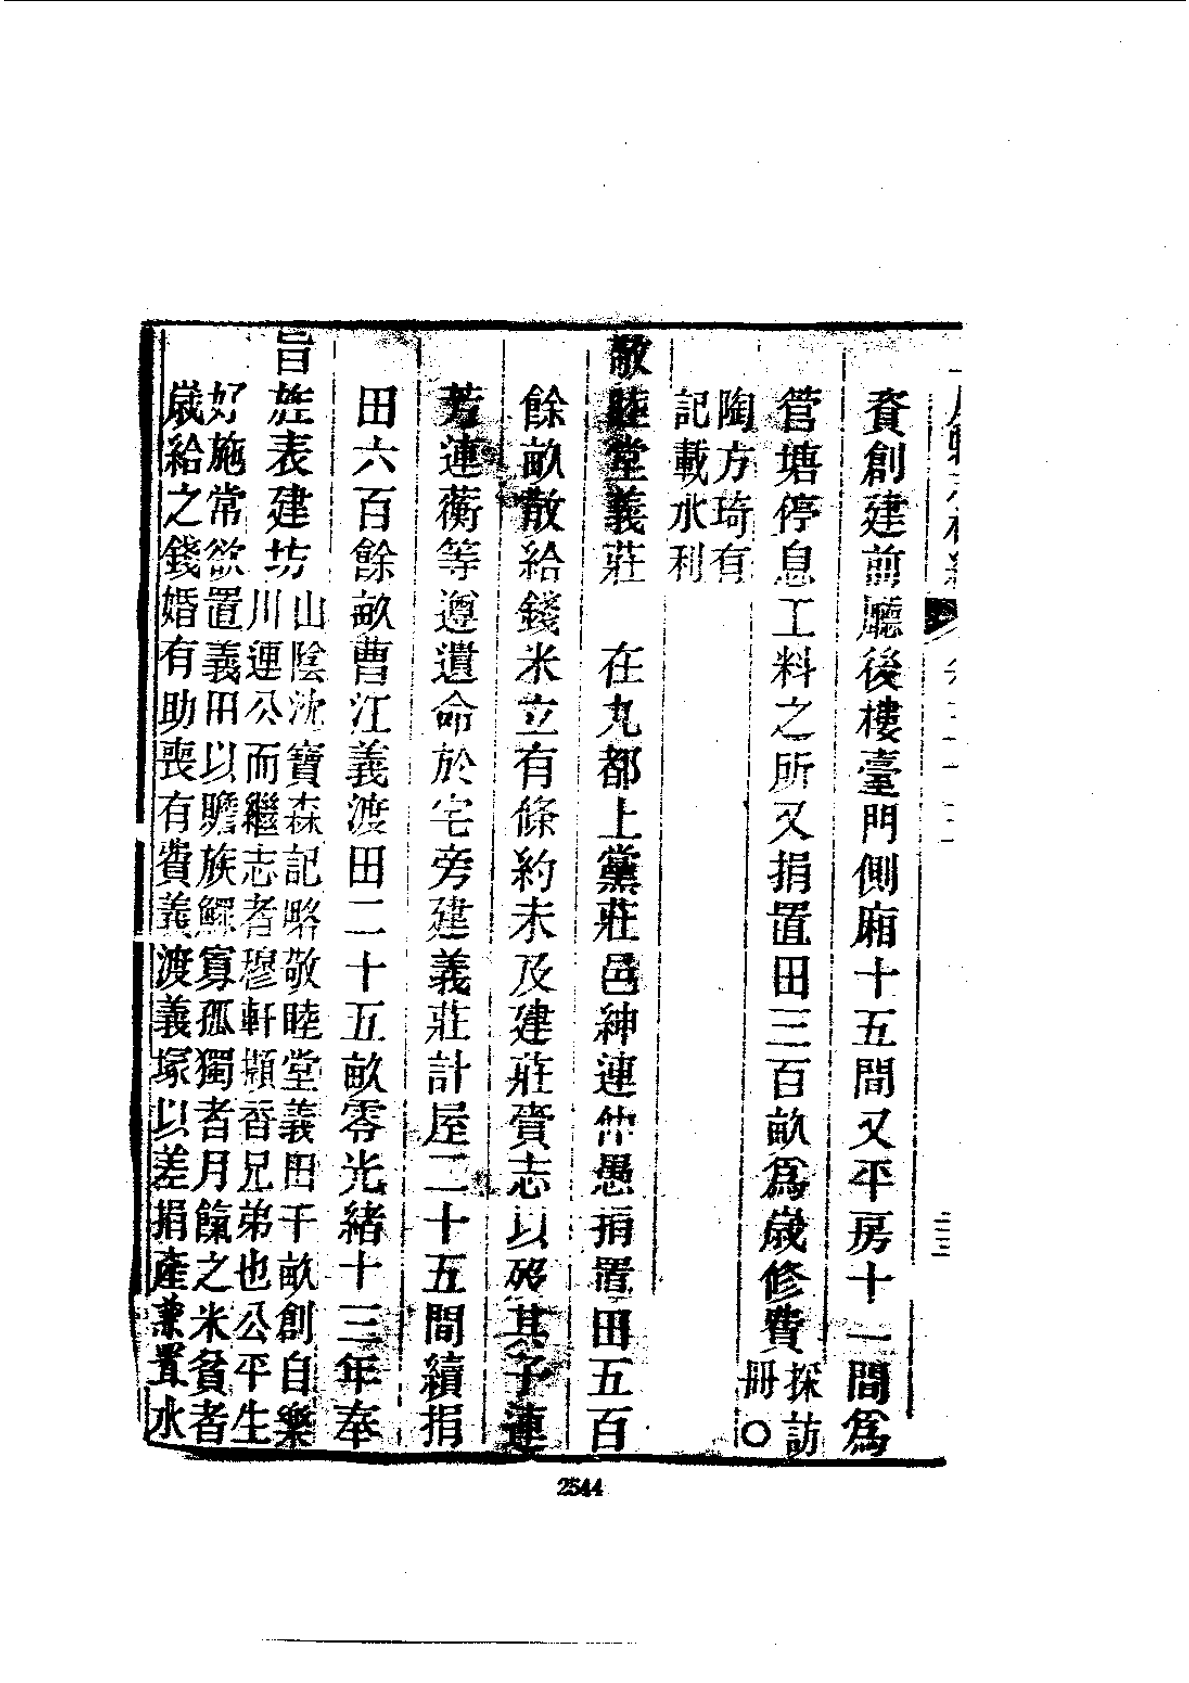 資創建前廳後樓臺門側廂十五間又平房十一間爲
管塘停息工料之所又捐置田三百畝爲歲修費
採訪
冊〇
陶方琦有
記載水利
敬睦堂義莊　在九都上黨莊邑紳連仲愚捐置田五百
餘畝散給錢米立有條約未及建莊賫志以歿其子連
芳連蘅等遵遺命於宅旁建義莊計屋二十五間續捐
田六百餘畝曹江義渡田二十五畝零光緒十三年奉
旨旌表建坊
山陰沈寶森記略敬睦堂義田千畝創自樂
川連公而繼志者穆軒擷香兄弟也公平生
好施常欲置義田以贍族鰥寡孤獨者月餼之米貧者
歲給之錢婚有助喪有費義渡義塚以差捐產兼置水
2544